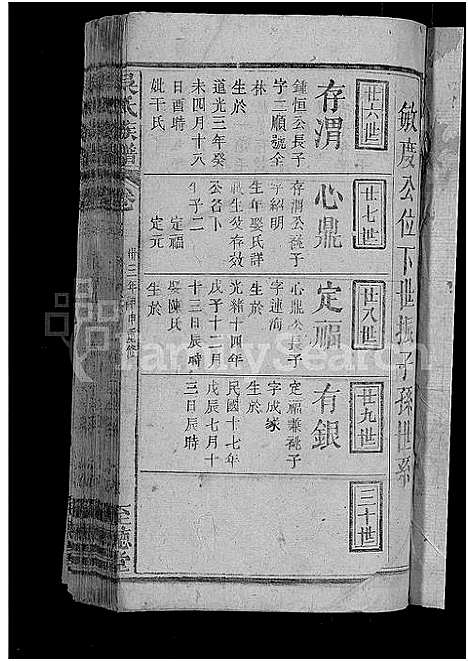 敏慶公位下世振子孫世系
廿六世
存渭
鍾恒公長子
字二順號全
林
生於
道光三年癸
未四月十八
日酉時
妣于氏
廿七世
心鼎
存渭公養子
字紹明
生年娶氏詳
公谷下
生子二
定福
定元
廿八世
定福
心鼎公長子
字連海
生於
光緒十四年
戊子十二月
十三日辰時
娶陳氏
生於
廿九世
有銀
定福兼祧子
字成家
生於
民國十七年
戊辰七月十
三日辰時
三十世
吳氏族譜
卷
至德堂
FamilySearch